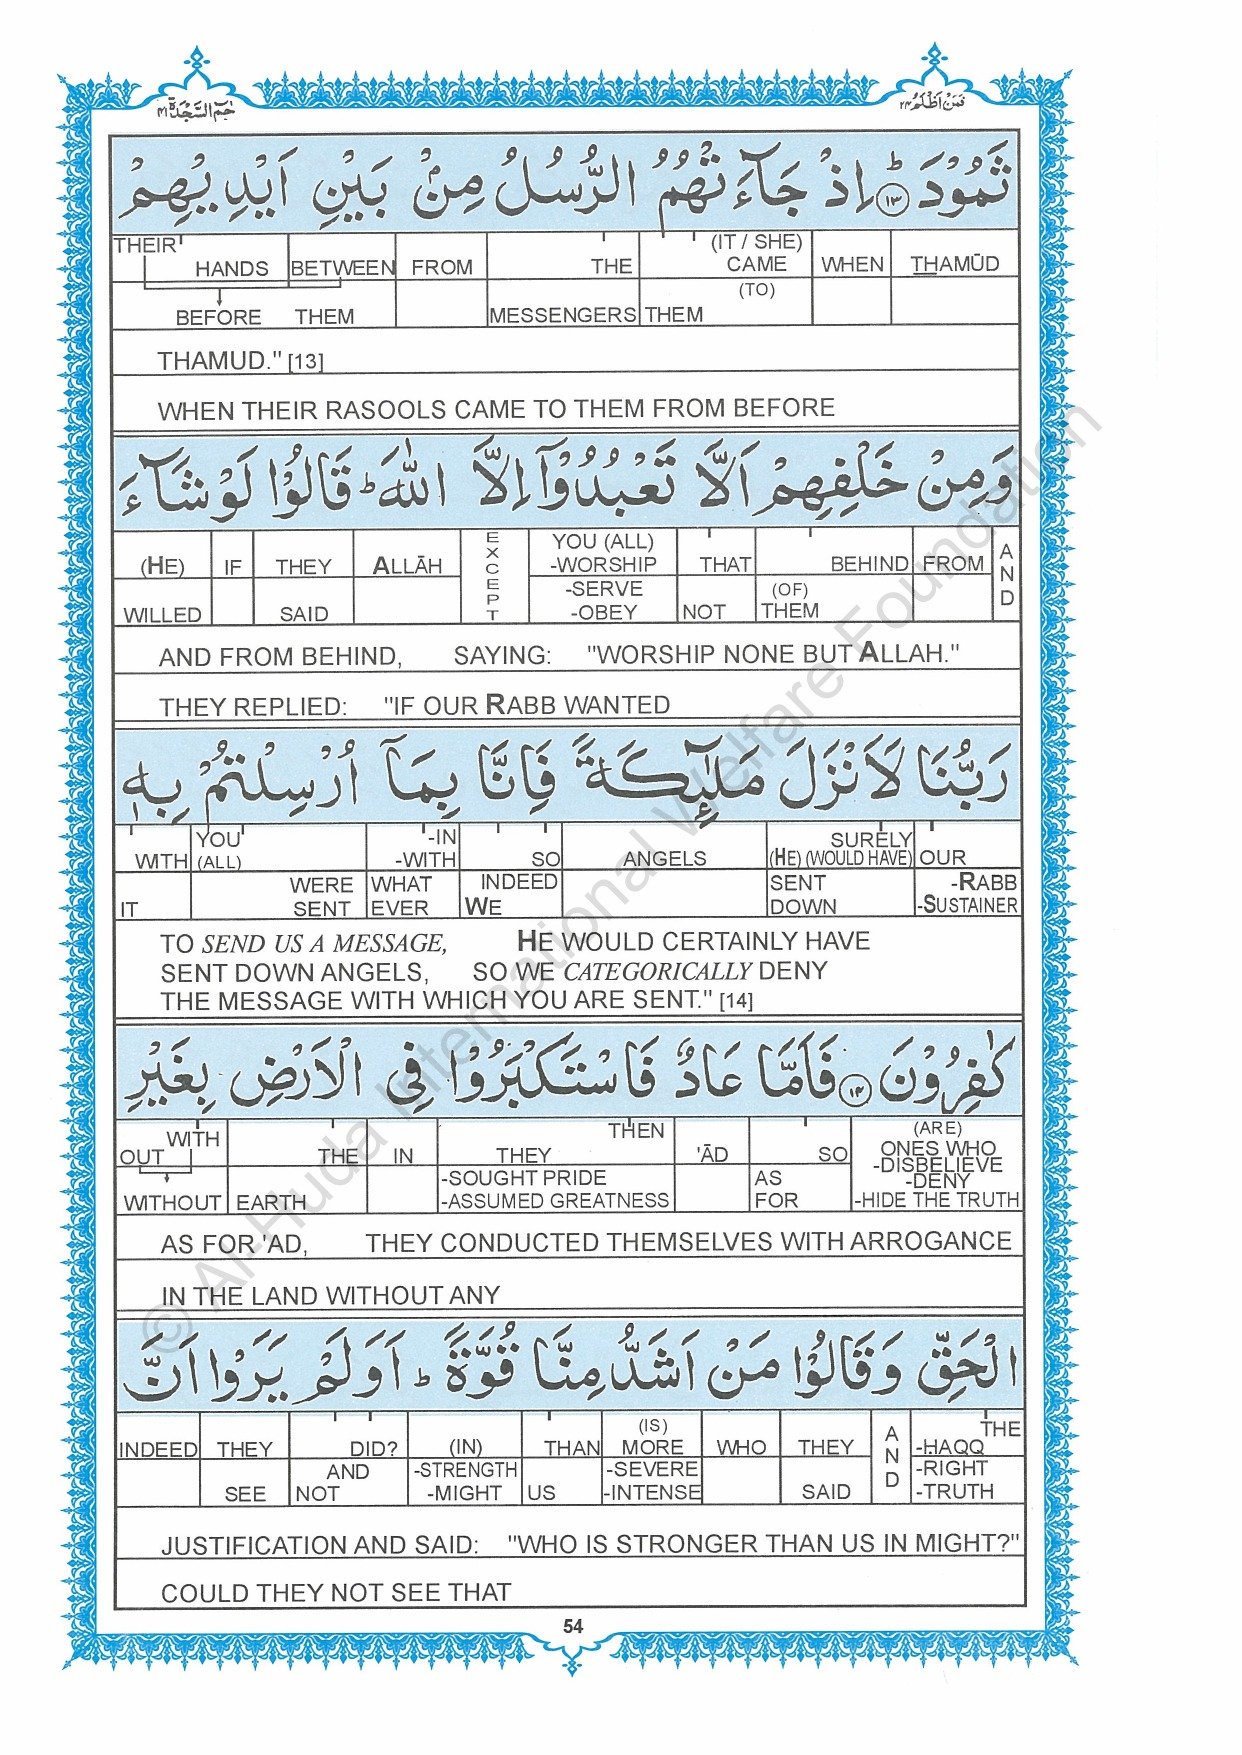 حٰمٓ السَّجْدَة ٤١
فَمَنْ اَظْلَمُ ٢٤
ثَمُوْدَ ؕ ۝١٣ اِذْ جَآءَتْهُمُ الرُّسُلُ مِنْۢ بَيْنِ اَيْدِيْهِمْ
THEIR HANDS BETWEEN FROM THE (IT / SHE) CAME WHEN THAMŪD
BEFORE THEM MESSENGERS THEM (TO)
THAMUD." [13]
WHEN THEIR RASOOLS CAME TO THEM FROM BEFORE
وَ مِنْ خَلْفِهِمْ اَلَّا تَعْبُدُوْۤا اِلَّا اللّٰهَ ؕ قَالُوْا لَوْ شَآءَ
(HE) IF THEY ALLĀH EXCEPT YOU (ALL) -WORSHIP THAT BEHIND FROM AND
WILLED SAID -SERVE -OBEY NOT (OF) THEM
AND FROM BEHIND, SAYING: "WORSHIP NONE BUT ALLAH."
THEY REPLIED: "IF OUR RABB WANTED
رَبُّنَا لَاَنْزَلَ مَلٰٓئِكَةً فَاِنَّا بِمَاۤ اُرْسِلْتُمْ بِهٖ
WITH YOU (ALL) -IN -WITH SO ANGELS SURELY (HE) (WOULD HAVE) OUR
IT WERE SENT WHAT EVER INDEED WE SENT DOWN -RABB -SUSTAINER
TO SEND US A MESSAGE, HE WOULD CERTAINLY HAVE
SENT DOWN ANGELS, SO WE CATEGORICALLY DENY
THE MESSAGE WITH WHICH YOU ARE SENT." [14]
كٰفِرُوْنَ ۝١٤ فَاَمَّا عَادٌ فَاسْتَكْبَرُوْا فِي الْاَرْضِ بِغَيْرِ
WITH OUT THE IN THEN THEY 'ĀD SO (ARE) ONES WHO -DISBELIEVE -DENY -HIDE THE TRUTH
WITHOUT EARTH -SOUGHT PRIDE -ASSUMED GREATNESS AS FOR
AS FOR 'AD, THEY CONDUCTED THEMSELVES WITH ARROGANCE
IN THE LAND WITHOUT ANY
الْحَقِّ وَ قَالُوْا مَنْ اَشَدُّ مِنَّا قُوَّةً ؕ اَوَلَمْ يَرَوْا اَنَّ
INDEED THEY DID? (IN) THAN (IS) MORE WHO THEY AND THE -HAQQ
SEE AND NOT -STRENGTH -MIGHT US -SEVERE -INTENSE SAID -RIGHT -TRUTH
JUSTIFICATION AND SAID: "WHO IS STRONGER THAN US IN MIGHT?"
COULD THEY NOT SEE THAT
54
© Al-Huda International Welfare Foundation